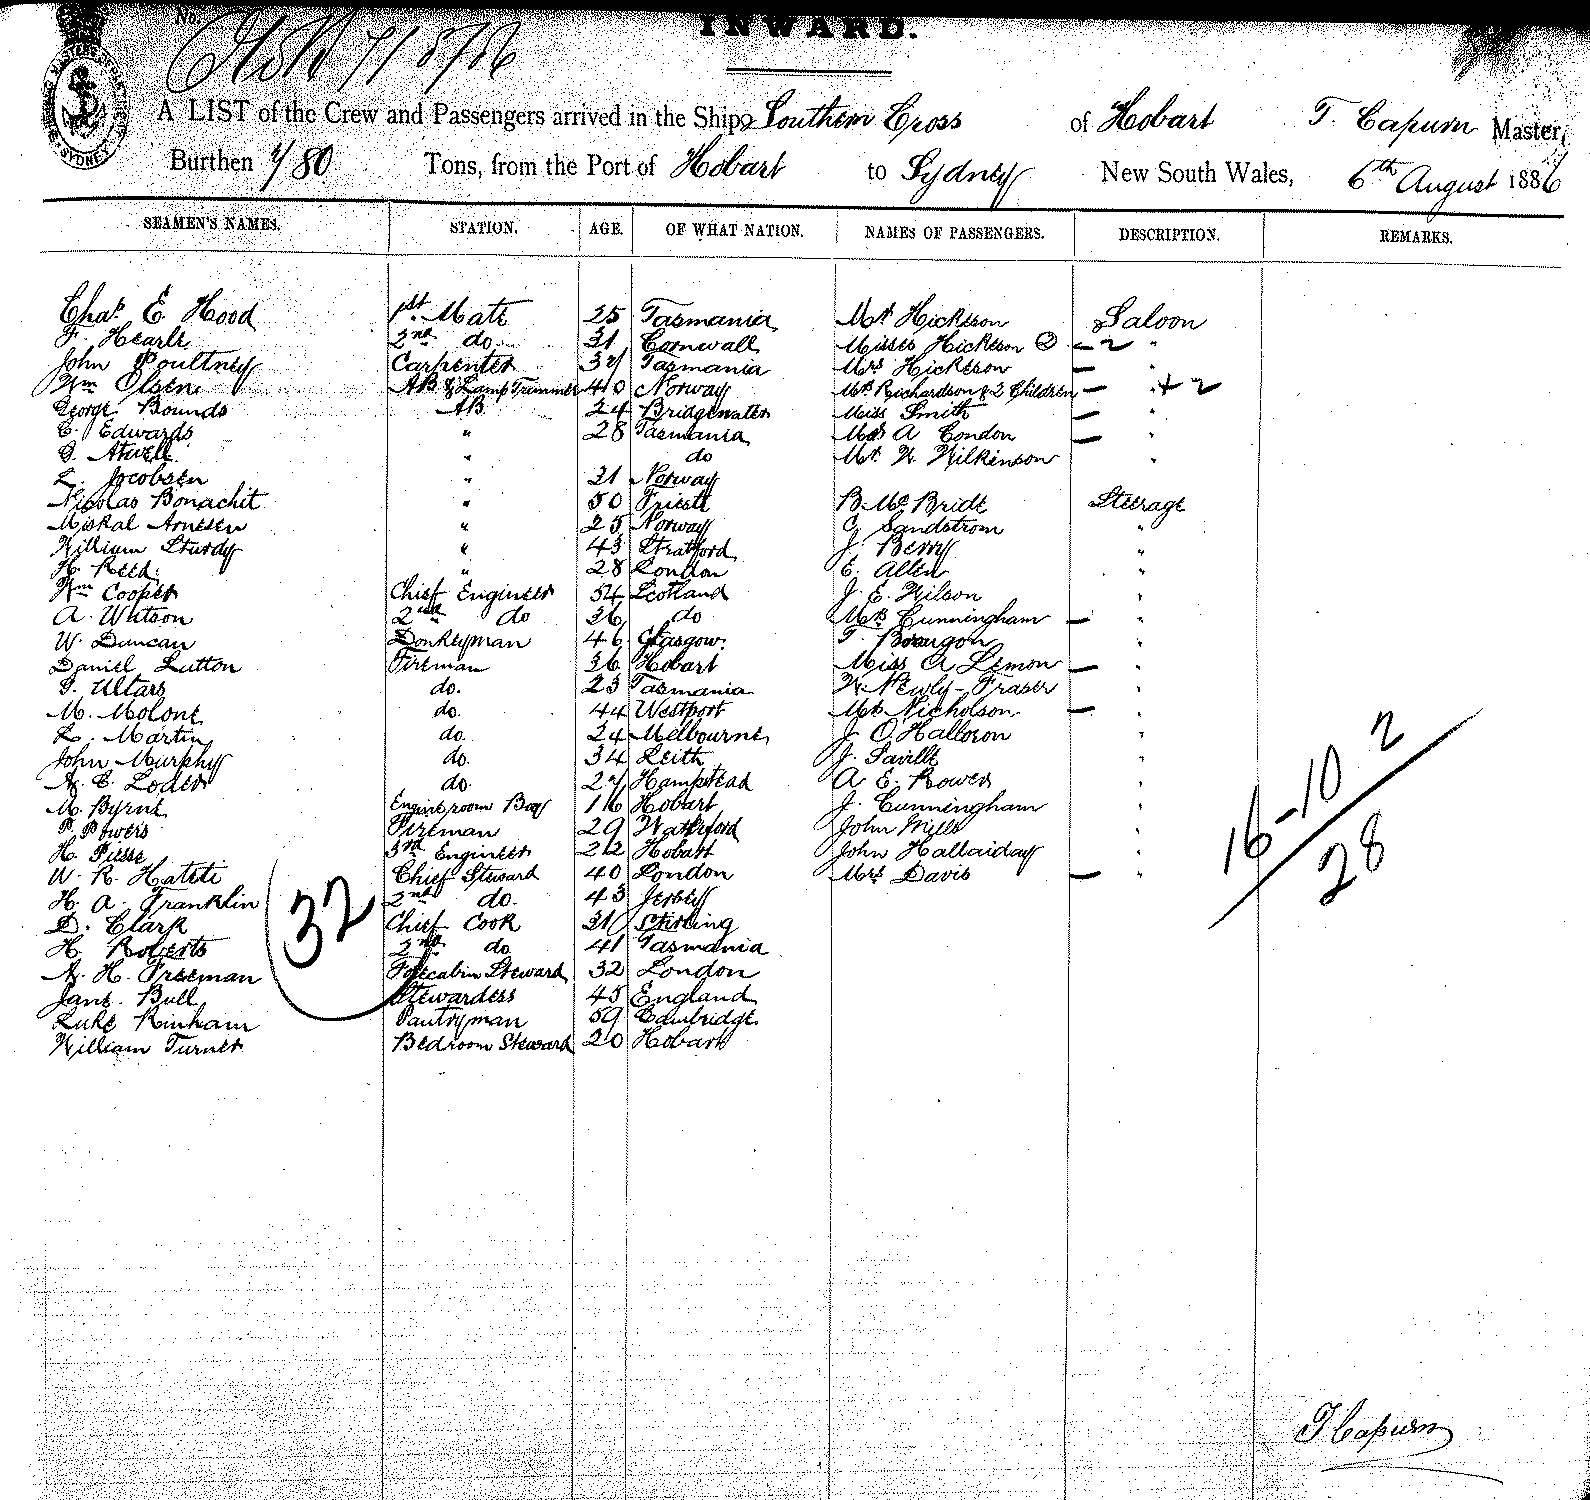 No.
INWARD.
A LIST of the Crew and Passengers arrived in the Ship Southern Cross of Hobart T. Capurn Master,
Burthen Tons, from the Port of Hobart to Sydney New South Wales, 6th August 1886
SEAMEN'S NAMES. STATION. AGE. OF WHAT NATION. NAMES OF PASSENGERS. DESCRIPTION. REMARKS.
Chas. E. Hood 1st Mate 25 Tasmania Mr Hickson Saloon
F. Hearle 2nd do 31 Cornwall Misses Hickson 2 — 2 "
John Poultney Carpenter Tasmania Mrs Hickson — "
Wm Olsen AB & Lamp Trimmer 40 Norway Mrs Richardson & 2 Children — " + 2
George Bounds AB 24 Bridgewater Miss Smith — "
E. Edwards " 28 Tasmania A Condon — "
Atwell " do Mr W. Wilkinson "
L. Jacobsen " 21 Norway
Nicolas Bonachit " 50 Trieste B. McBride Steerage
Miskal Arnesen " 25 Norway C. Sandstrom "
William Sturdy " 43 Stratford J. Berry "
H. Reed " 28 London E. Allen "
Wm Cooper Chief Engineer 54 Scotland J. E. Wilson "
A. Watson 2nd do 36 do Mrs Cunningham — "
W. Duncan Donkeyman 46 Glasgow T. Bourgon "
Daniel Lutton Fireman 36 Hobart Miss A Lemon — "
Ultars do. 23 Tasmania W. Newly-Fraser "
M. Molone do. 44 Westport Mrs Nicholson — "
L. Martin do. 24 Melbourne J. O'Halloron "
John Murphy do. 34 Leith J. Saville "
A. E. Loder do. 27 Hampstead A E. Rower "
M. Byrne Engineroom Boy 16 Hobart J. Cunningham "
P. Powers Fireman 29 Waterford John Mills "
H. Piesse 3rd Engineer 22 Hobart John Hallaiday "
W. R. Hatete Chief Steward 40 London Mrs Davis — "
H. A. Franklin 2nd do. 43 Jersey
D. Clark Chief Cook 31 Stirling
H. Roberts 2nd do 41 Tasmania
A. H. Freeman Forecabin Steward 32 London
Jane Bull Stewardess 45 England
Luke Kinham Pantryman 59 Cambridge
William Turner Bedroom Steward 20 Hobart
32
16-10 2
28
T Capurn